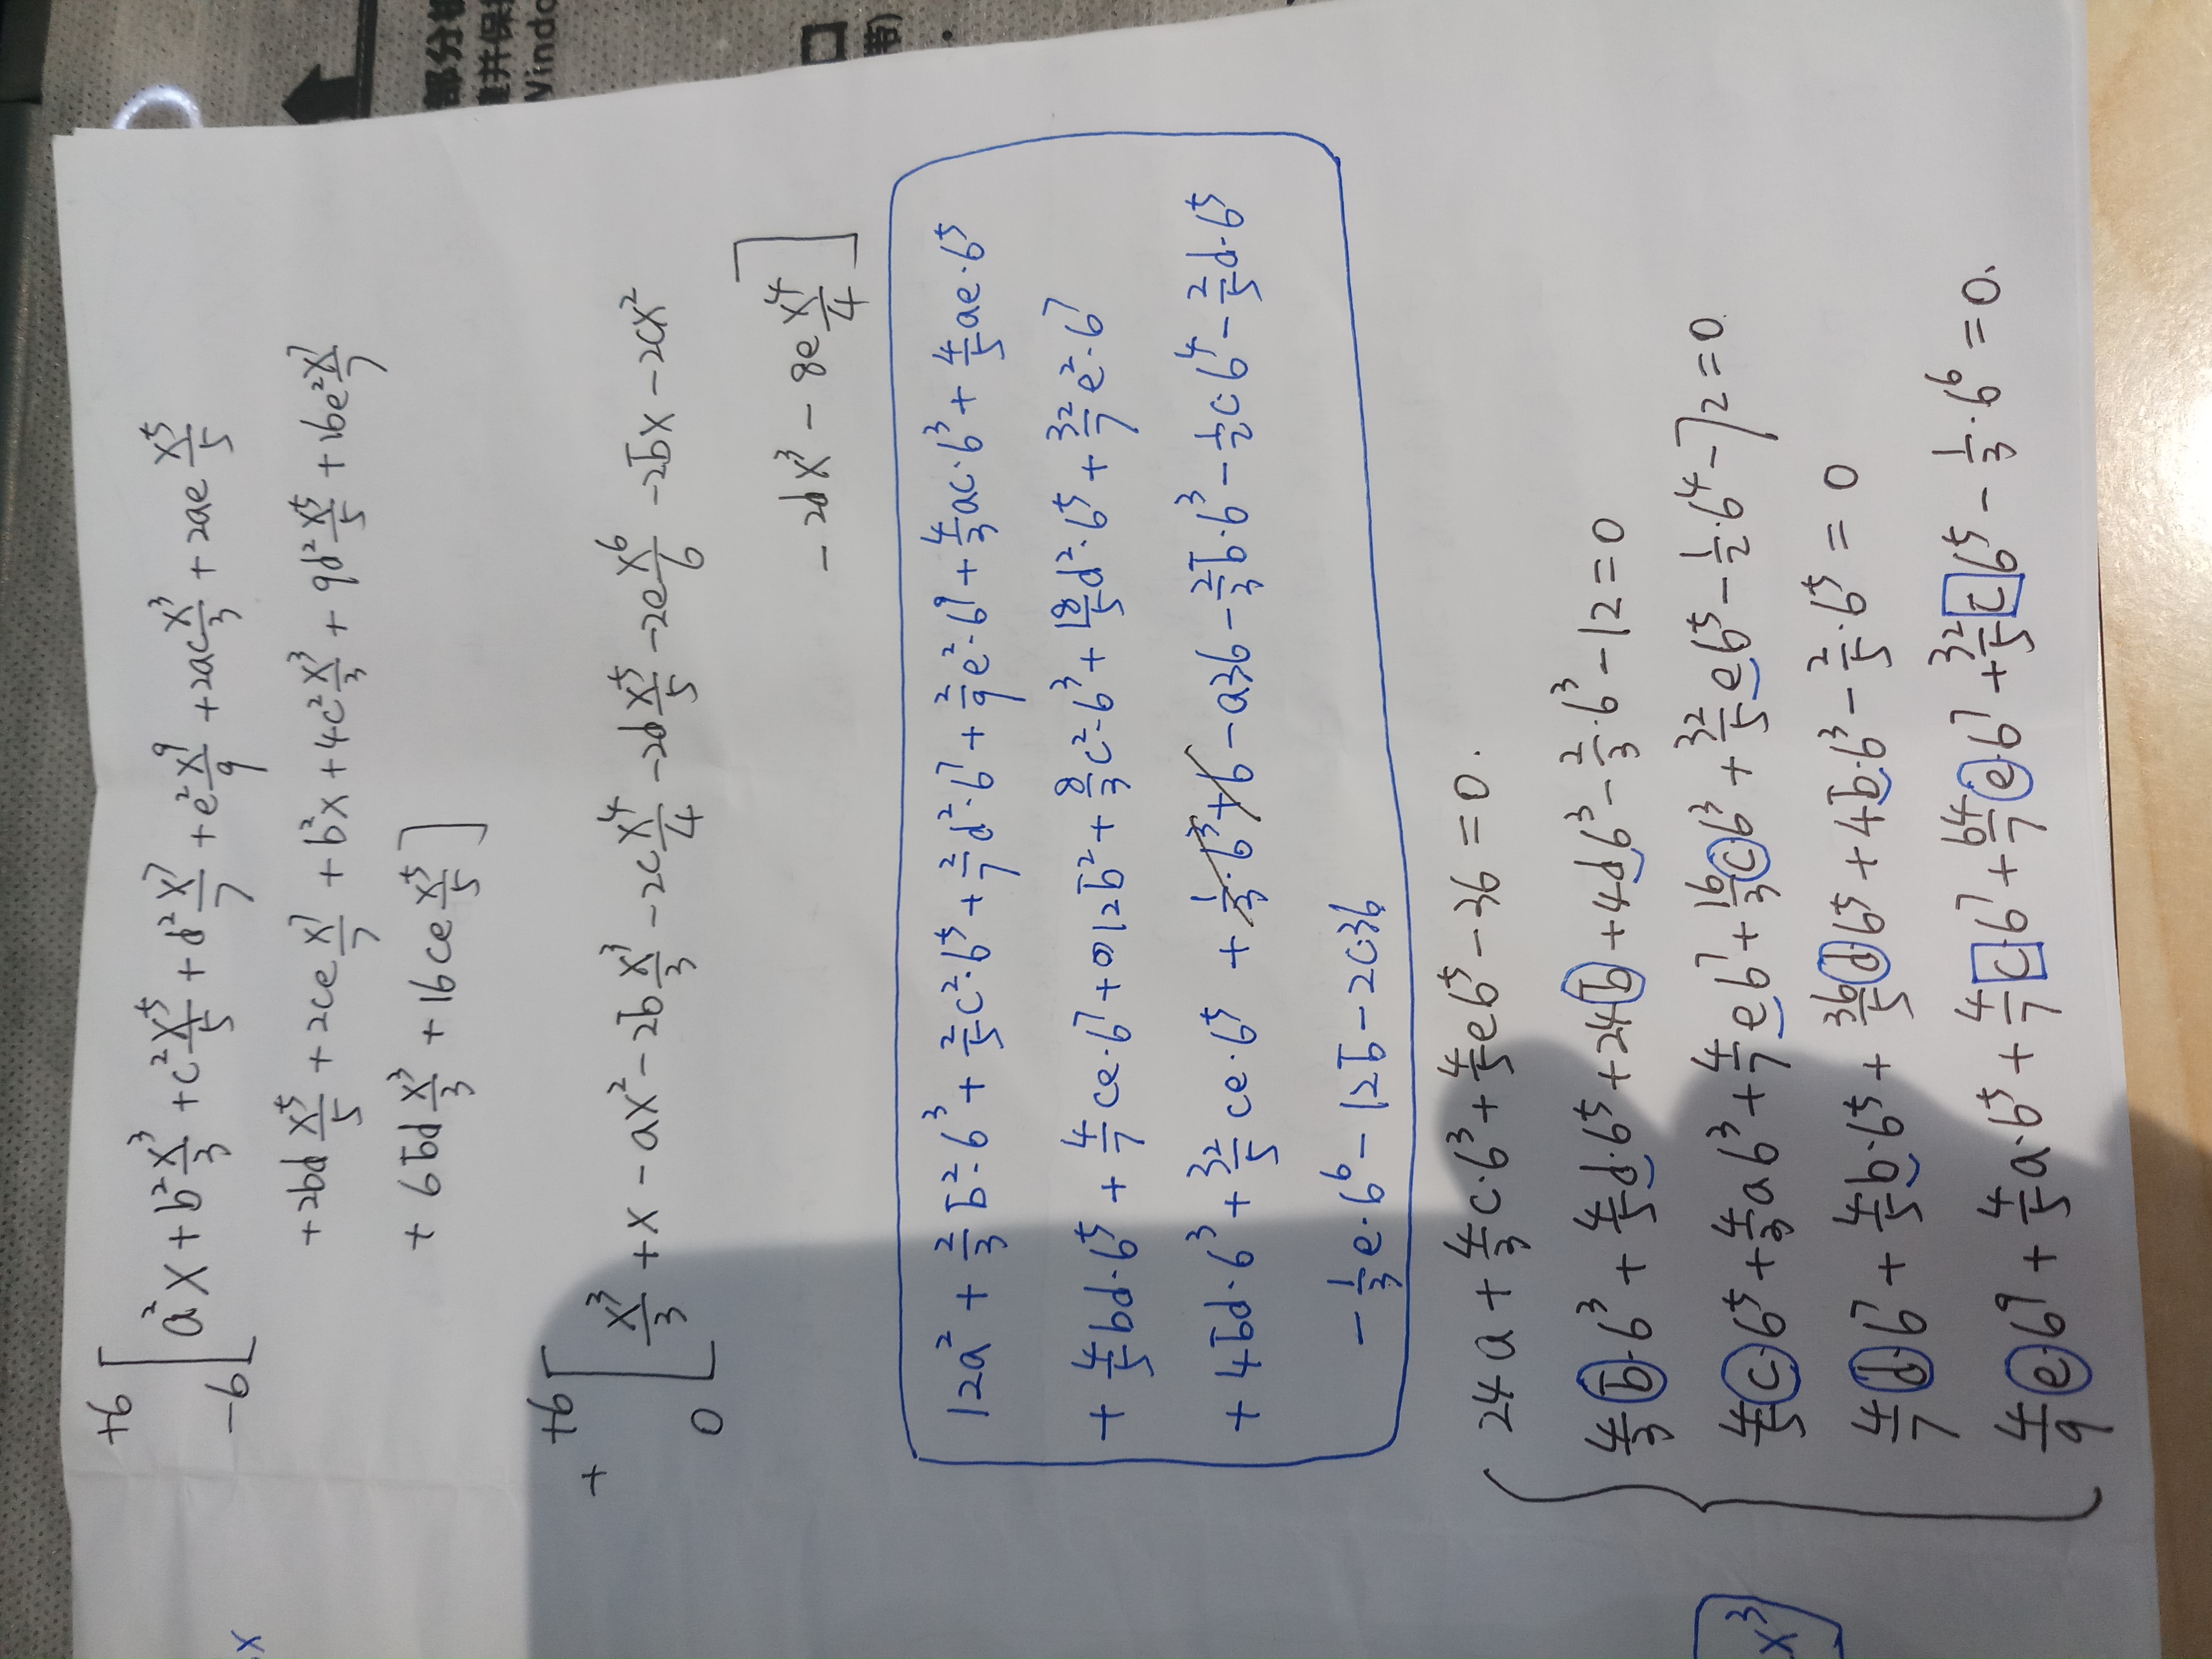 x
+6
-6 [ a²x + b² x³/3 + c² x⁵/5 + d² x⁷/7 + e² x⁹/9 + 2ac x³/3 + 2ae x⁵/5
+ 2bd x⁵/5 + 2ce x⁷/7 + b²x + 4c² x³/3 + 9d² x⁵/5 + 16e² x⁷/7
+ 6bd x³/3 + 16ce x⁵/5 ]
+
+6
0 [ x³/3 + x - ax² - 2b x³/3 - 2c x⁴/4 - 2d x⁵/5 - 2e x⁶/6 - 2bx - 2cx²
- 2dx³ - 8e x⁴/4 ]
12a² + 2/3 b²·6³ + 2/5 c²·6⁵ + 2/7 d²·6⁷ + 2/9 e²·6⁹ + 4/3 ac·6³ + 4/5 ae·6⁵
+ 4/5 bd·6⁵ + 4/7 ce·6⁷ + 12b² + 8/3 c²·6³ + 18/5 d²·6⁵ + 32/7 e²·6⁷
+ 4bd·6³ + 32/5 ce·6⁵ + 1/3·6³ + 6 - a36 - 2/3 b·6³ - 1/2 c·6⁴ - 2/5 d·6⁵
- 1/3 e·6⁶ - 12b - 2c·36
x³
{ 24a + 4/3 c·6³ + 4/5 e6⁵ - 36 = 0.
4/3 b·6³ + 4/5 d·6⁵ + 24b + 4d6³ - 2/3·6³ - 12 = 0
4/5 c·6⁵ + 4/3 a6³ + 4/7 e6⁷ + 16/3 c6³ + 32/5 e6⁵ - 1/2·6⁴ - 72 = 0
4/7 d·6⁷ + 4/5 b·6⁵ + 36/5 d6⁵ + 4b·6³ - 2/5·6⁵ = 0
4/9 e·6⁹ + 4/5 a·6⁵ + 4/7 c·6⁷ + 64/7 e·6⁷ + 32/5 c6⁵ - 1/3·6⁶ = 0.
部分
Windo